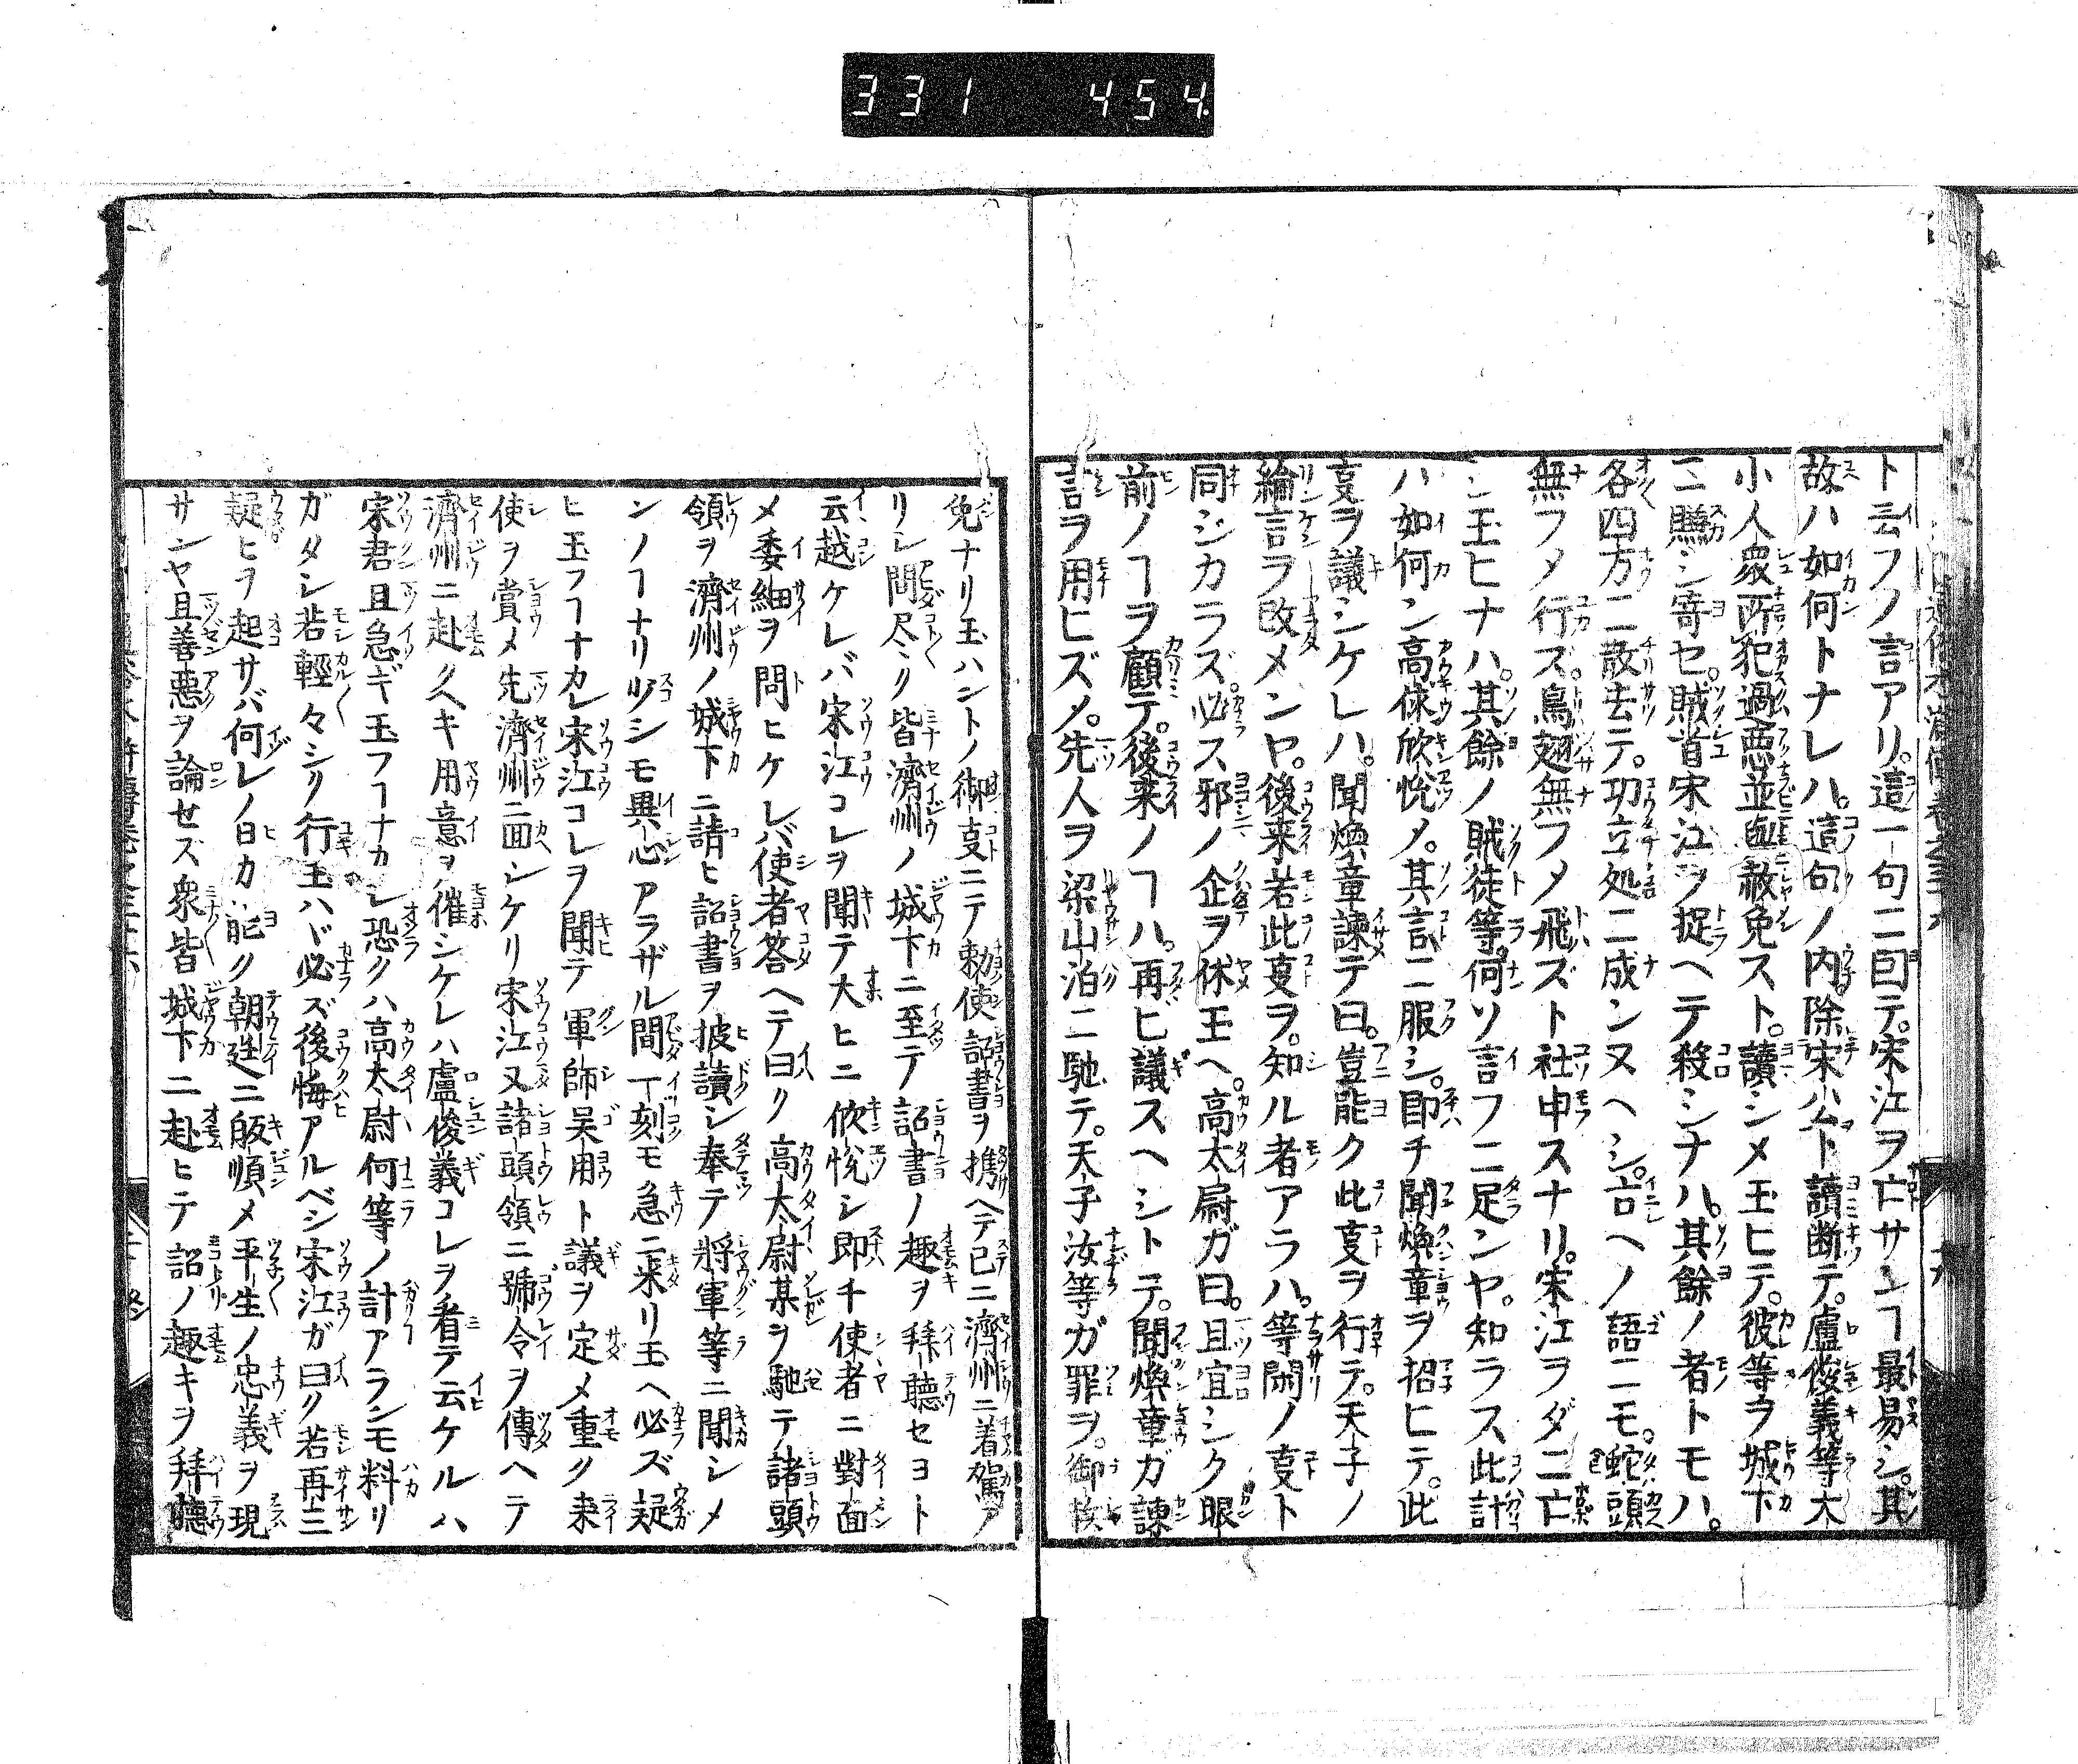 331 454
ト云フノ言アリ。這一句ニ因テ。宋江ヲ亡サンヿ最易シ。其
故ハ如何トナレハ。這句ノ内除宋公ト讀断テ。盧俊義等大
小人衆所犯過悪並與赦免スト。讀シメ玉ヒテ。彼等ヲ城下
ニ賺シ寄セ。賊首宋江ヲ捉ヘテ殺シナハ。其餘ノ者トモハ。
各四方ニ散去テ。功立処ニ成ンヌヘシ。古ヘノ語ニモ。蛇頭
無フメ行ズ。鳥翅無フメ飛ズト社申スナリ。宋江ヲダニ亡
シ玉ヒナハ。其餘ノ賊徒等。何ソ言フニ足ンヤ。知ラス此計
ハ如何ン高俅欣悦メ。其言ニ服シ。即チ聞煥章ヲ招ヒテ。此
叓ヲ議シケレハ。聞煥章諫テ曰。豈能ク此叓ヲ行テ。天子ノ
綸言ヲ改メンヤ。後来若此叓ヲ。知ル者アラハ。等閑ノ叓ト
同シカラズ。必ス邪ノ企ヲ休玉ヘ。高太尉ガ曰。且宜シク眼
前ノヿヲ顧テ。後来ノヿハ。再ビ議スヘシトテ。聞煥章ガ諫
言ヲ用ヒズメ。先人ヲ梁山泊ニ馳テ。天子汝等ガ罪ヲ。御
免ナリ玉ハントノ御叓ニテ勅使詔書ヲ携ヘテ已ニ濟州ニ着駕ア
リシ間尽ク皆濟州ノ城下ニ至テ詔書ノ趣ヲ拜聴セヨト
云越ケレバ宋江コレヲ聞テ大ヒニ欣悦シ即チ使者ニ對面
メ委細ヲ問ヒケレバ使者答ヘテ曰ク高太尉某ヲ馳テ諸頭
領ヲ濟州ノ城下ニ請ヒ詔書ヲ披讀シ奉テ將軍等ニ聞シメ
ンノヿナリ少シモ異心アラザル間丁刻モ急ニ来リ玉ヘ必ズ疑
ヒ玉フヿナカレ宋江コレヲ聞テ軍師吴用ト議ヲ定メ重ク来
使ヲ賞メ先濟州ニ回シケリ宋江又諸頭領ニ號令ヲ傳ヘテ
濟州ニ赴クヘキ用意ヲ催シケレハ盧俊義コレヲ看テ云ケルハ
宋君且急ギ玉フヿナカレ恐クハ高太尉何等ノ計アランモ料リ
ガタシ若輕々シク行玉ハバ必ズ後悔アルベシ宋江ガ曰ク若再三
疑ヒヲ起サバ何レノ日カ能ク朝廷ニ皈順メ平生ノ忠義ヲ現
サンヤ且善悪ヲ論セズ衆皆城下ニ赴ヒテ詔ノ趣キヲ拜聴